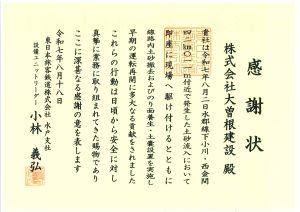 感謝状
株式会社大曽根建設 殿
貴社は令和七年八月二日水郡線下小川・西金間
四二k〇一一m付近で発生した土砂流入において
即座に現場へ駆け付けるとともに
線路内土砂撤去およびのり面養生・土嚢設置を実施し
早期の運転再開に多大なる貢献をされました
これらの行動は日頃から安全に対し
真摯に業務に取り組まれてきた賜物であり
ここに深甚なる感謝の意を表します
令和七年八月十八日
東日本旅客鉄道株式会社 水戸支社
設備ユニットリーダー
小林 義弘